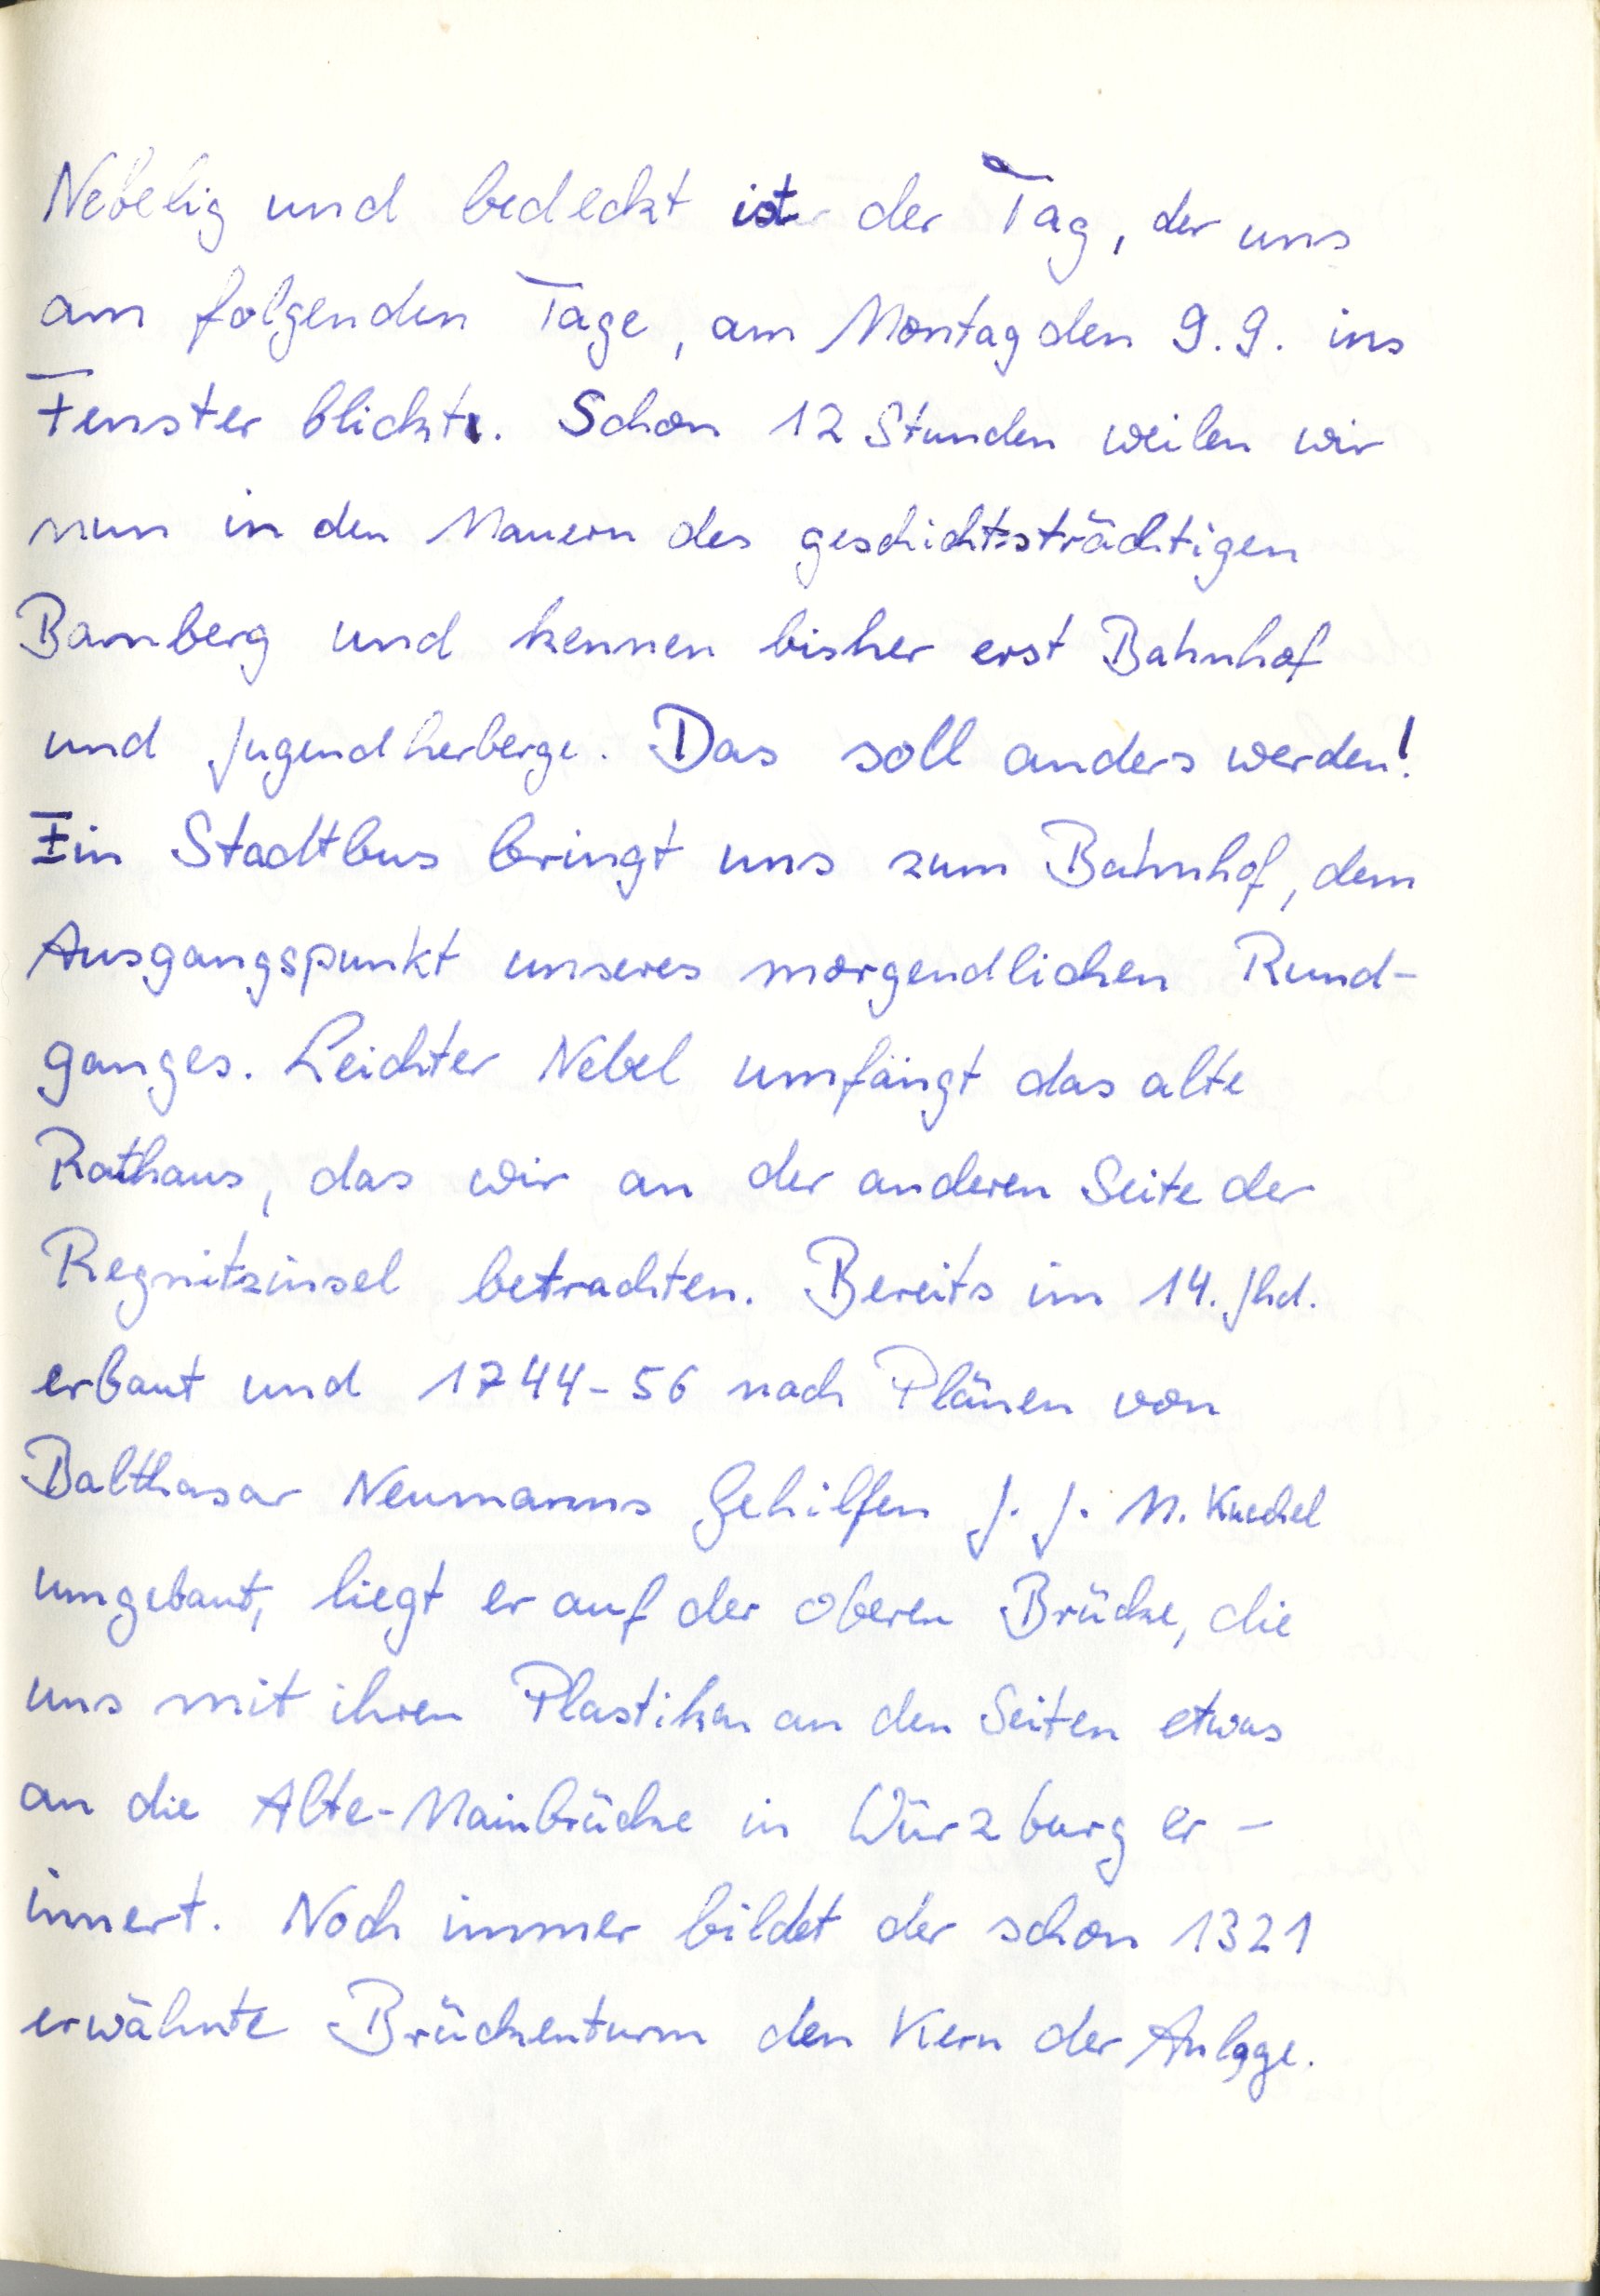 Nebelig und bedeckt ist der Tag, der uns
am folgenden Tage, am Montag den 9.9. ins
Fenster blickt. Schon 12 Stunden weilen wir
nun in den Mauern des geschichtsträchtigen
Bamberg und kennen bisher erst Bahnhof
und Jugendherberge. Das soll anders werden!
Ein Stadtbus bringt uns zum Bahnhof, dem
Ausgangspunkt unseres morgendlichen Rund-
ganges. Leichter Nebel umfängt das alte
Rathaus, das wir an der anderen Seite der
Regnitzinsel betrachten. Bereits im 14. Jhd.
erbaut und 1744-56 nach Plänen von
Balthasar Neumanns Gehilfen J. J. M. Küchel
umgebaut, liegt er auf der oberen Brücke, die
uns mit ihren Plastiken an den Seiten etwas
an die Alte-Mainbrücke in Würzburg er-
innert. Noch immer bildet der schon 1321
erwähnte Brückenturm den Kern der Anlage.